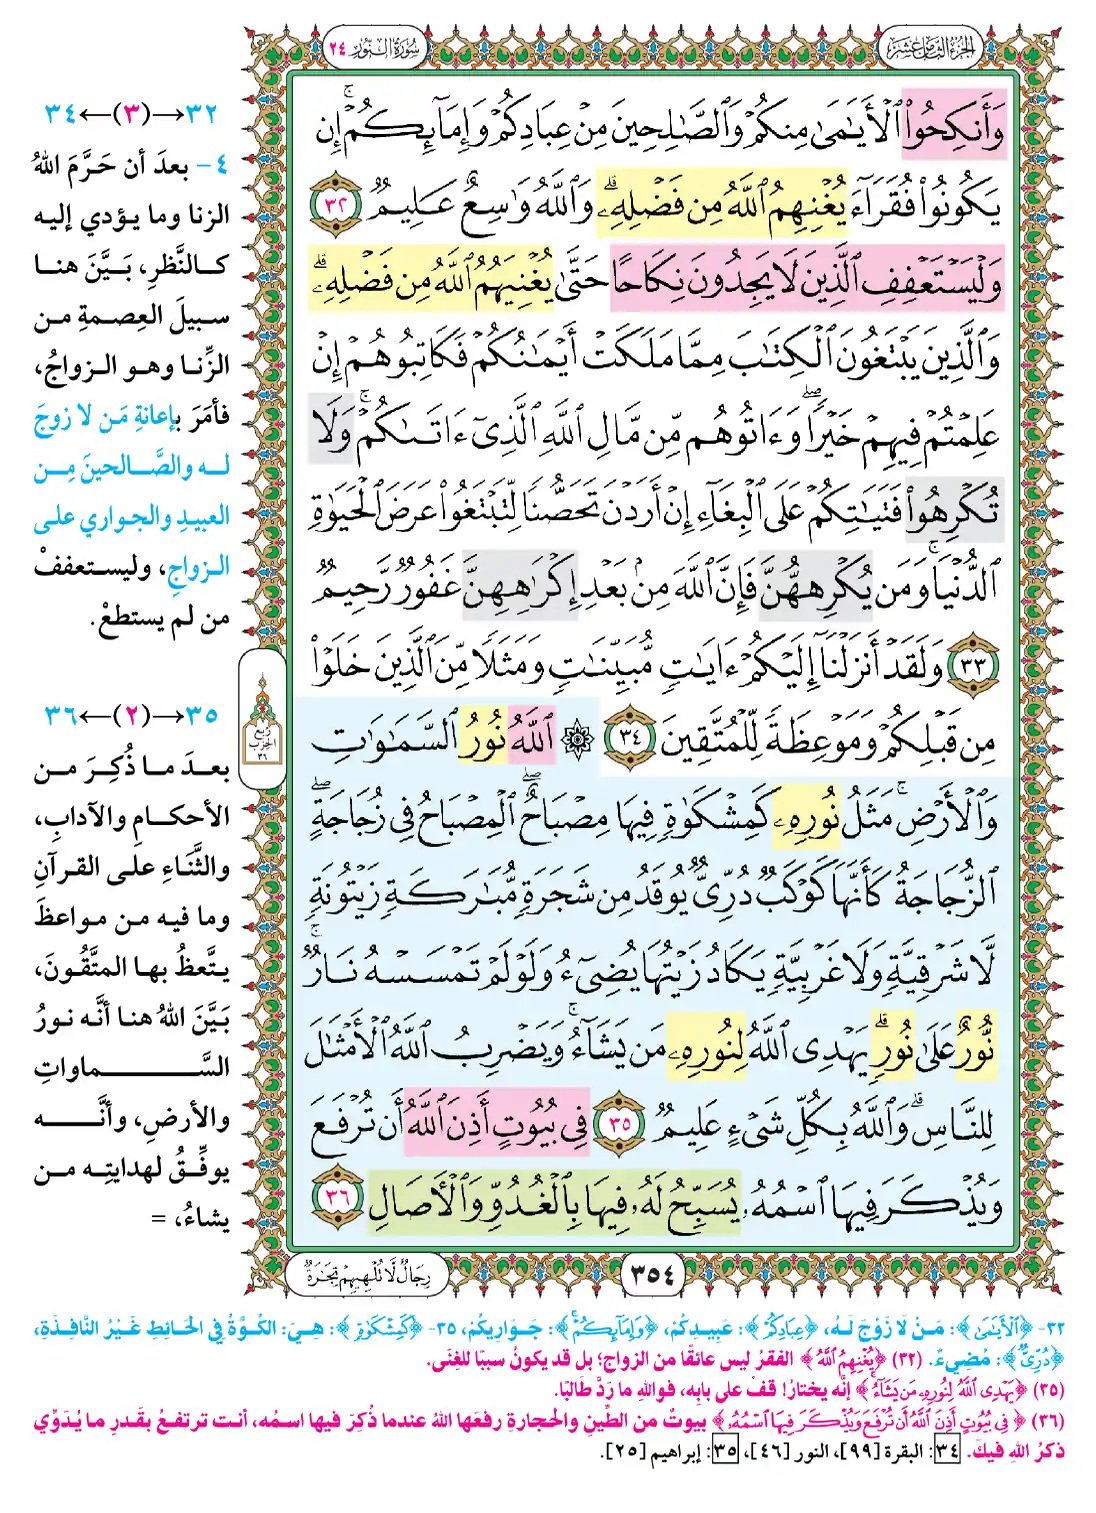 الجزء الثامن عشر
سورة النور ٢٤
وَأَنكِحُوا۟ ٱلْأَيَـٰمَىٰ مِنكُمْ وَٱلصَّـٰلِحِينَ مِنْ عِبَادِكُمْ وَإِمَآئِكُمْ ۚ إِن
يَكُونُوا۟ فُقَرَآءَ يُغْنِهِمُ ٱللَّهُ مِن فَضْلِهِۦ ۗ وَٱللَّهُ وَٰسِعٌ عَلِيمٌ ٣٢
وَلْيَسْتَعْفِفِ ٱلَّذِينَ لَا يَجِدُونَ نِكَاحًا حَتَّىٰ يُغْنِيَهُمُ ٱللَّهُ مِن فَضْلِهِۦ ۗ
وَٱلَّذِينَ يَبْتَغُونَ ٱلْكِتَـٰبَ مِمَّا مَلَكَتْ أَيْمَـٰنُكُمْ فَكَاتِبُوهُمْ إِنْ
عَلِمْتُمْ فِيهِمْ خَيْرًا ۖ وَءَاتُوهُم مِّن مَّالِ ٱللَّهِ ٱلَّذِىٓ ءَاتَىٰكُمْ ۚ وَلَا
تُكْرِهُوا۟ فَتَيَـٰتِكُمْ عَلَى ٱلْبِغَآءِ إِنْ أَرَدْنَ تَحَصُّنًا لِّتَبْتَغُوا۟ عَرَضَ ٱلْحَيَوٰةِ
ٱلدُّنْيَا ۚ وَمَن يُكْرِههُّنَّ فَإِنَّ ٱللَّهَ مِنۢ بَعْدِ إِكْرَٰهِهِنَّ غَفُورٌ رَّحِيمٌ
٣٣ وَلَقَدْ أَنزَلْنَآ إِلَيْكُمْ ءَايَـٰتٍ مُّبَيِّنَـٰتٍ وَمَثَلًا مِّنَ ٱلَّذِينَ خَلَوْا۟
مِن قَبْلِكُمْ وَمَوْعِظَةً لِّلْمُتَّقِينَ ٣٤ ۞ ٱللَّهُ نُورُ ٱلسَّمَـٰوَٰتِ
وَٱلْأَرْضِ ۚ مَثَلُ نُورِهِۦ كَمِشْكَوٰةٍ فِيهَا مِصْبَاحٌ ۖ ٱلْمِصْبَاحُ فِى زُجَاجَةٍ ۖ
ٱلزُّجَاجَةُ كَأَنَّهَا كَوْكَبٌ دُرِّىٌّ يُوقَدُ مِن شَجَرَةٍ مُّبَـٰرَكَةٍ زَيْتُونَةٍ
لَّا شَرْقِيَّةٍ وَلَا غَرْبِيَّةٍ يَكَادُ زَيْتُهَا يُضِىٓءُ وَلَوْ لَمْ تَمْسَسْهُ نَارٌ ۚ
نُّورٌ عَلَىٰ نُورٍ ۗ يَهْدِى ٱللَّهُ لِنُورِهِۦ مَن يَشَآءُ ۚ وَيَضْرِبُ ٱللَّهُ ٱلْأَمْثَـٰلَ
لِلنَّاسِ ۗ وَٱللَّهُ بِكُلِّ شَىْءٍ عَلِيمٌ ٣٥ فِى بُيُوتٍ أَذِنَ ٱللَّهُ أَن تُرْفَعَ
وَيُذْكَرَ فِيهَا ٱسْمُهُۥ يُسَبِّحُ لَهُۥ فِيهَا بِٱلْغُدُوِّ وَٱلْـَٔاصَالِ ٣٦
٣٥٤
رِجَالٌ لَّا تُلْهِيهِمْ تِجَـٰرَةٌ
ربع
الحزب
٣٦
٣٢→(٣)←٣٤
٤- بعدَ أن حَرَّمَ اللهُ
الزنا وما يؤدي إليه
كالنَّظرِ، بَيَّنَ هنا
سبيلَ العِصمةِ من
الزِّنا وهو الزواجُ،
فأمَرَ بإعانةِ مَن لا زوجَ
له والصَّالحينَ مِن
العبيدِ والجواري على
الزواجِ، وليستعففْ
من لم يستطعْ.
٣٥→(٢)←٣٦
بعدَ ما ذُكِرَ من
الأحكامِ والآدابِ،
والثَّناءِ على القرآنِ
وما فيه من مواعظَ
يتَّعظُ بها المتَّقُونَ،
بَيَّنَ اللهُ هنا أنَّه نورُ
السَّماواتِ
والأرضِ، وأنَّه
يوفِّقُ لهدايتِه من
يشاءُ، =
٣٢- ﴿ٱلْأَيَـٰمَىٰ﴾: مَنْ لَا زَوْجَ لَهُ، ﴿عِبَادِكُمْ﴾: عَبِيدِكُمْ، ﴿وَإِمَآئِكُمْ ۚ﴾: جَوَارِيكُمْ، ٣٥- ﴿كَمِشْكَوٰةٍ﴾: هِيَ: الكُوَّةُ فِي الحَائِطِ غَيْرُ النَّافِذَةِ،
﴿دُرِّىٌّ﴾: مُضِيءٌ. (٣٢) ﴿يُغْنِهِمُ ٱللَّهُ﴾ الفقرُ ليس عائقًا من الزواج؛ بل قد يكونُ سببًا للغِنَى.
(٣٥) ﴿يَهْدِى ٱللَّهُ لِنُورِهِۦ مَن يَشَآءُ ۚ﴾ إنَّه يختارُ! قفْ على بابِه، فواللهِ ما رَدَّ طَالبًا.
(٣٦) ﴿فِى بُيُوتٍ أَذِنَ ٱللَّهُ أَن تُرْفَعَ وَيُذْكَرَ فِيهَا ٱسْمُهُۥ﴾ بيوتٌ من الطِّينِ والحجارةِ رفعَها اللهُ عندما ذُكِرَ فيها اسمُه، أنت ترتفعُ بقَدرِ ما يُدَوِّي
ذكرُ اللهِ فيكَ. ٣٤: البقرة [٩٩]، النور [٤٦]، ٣٥: إبراهيم [٢٥].